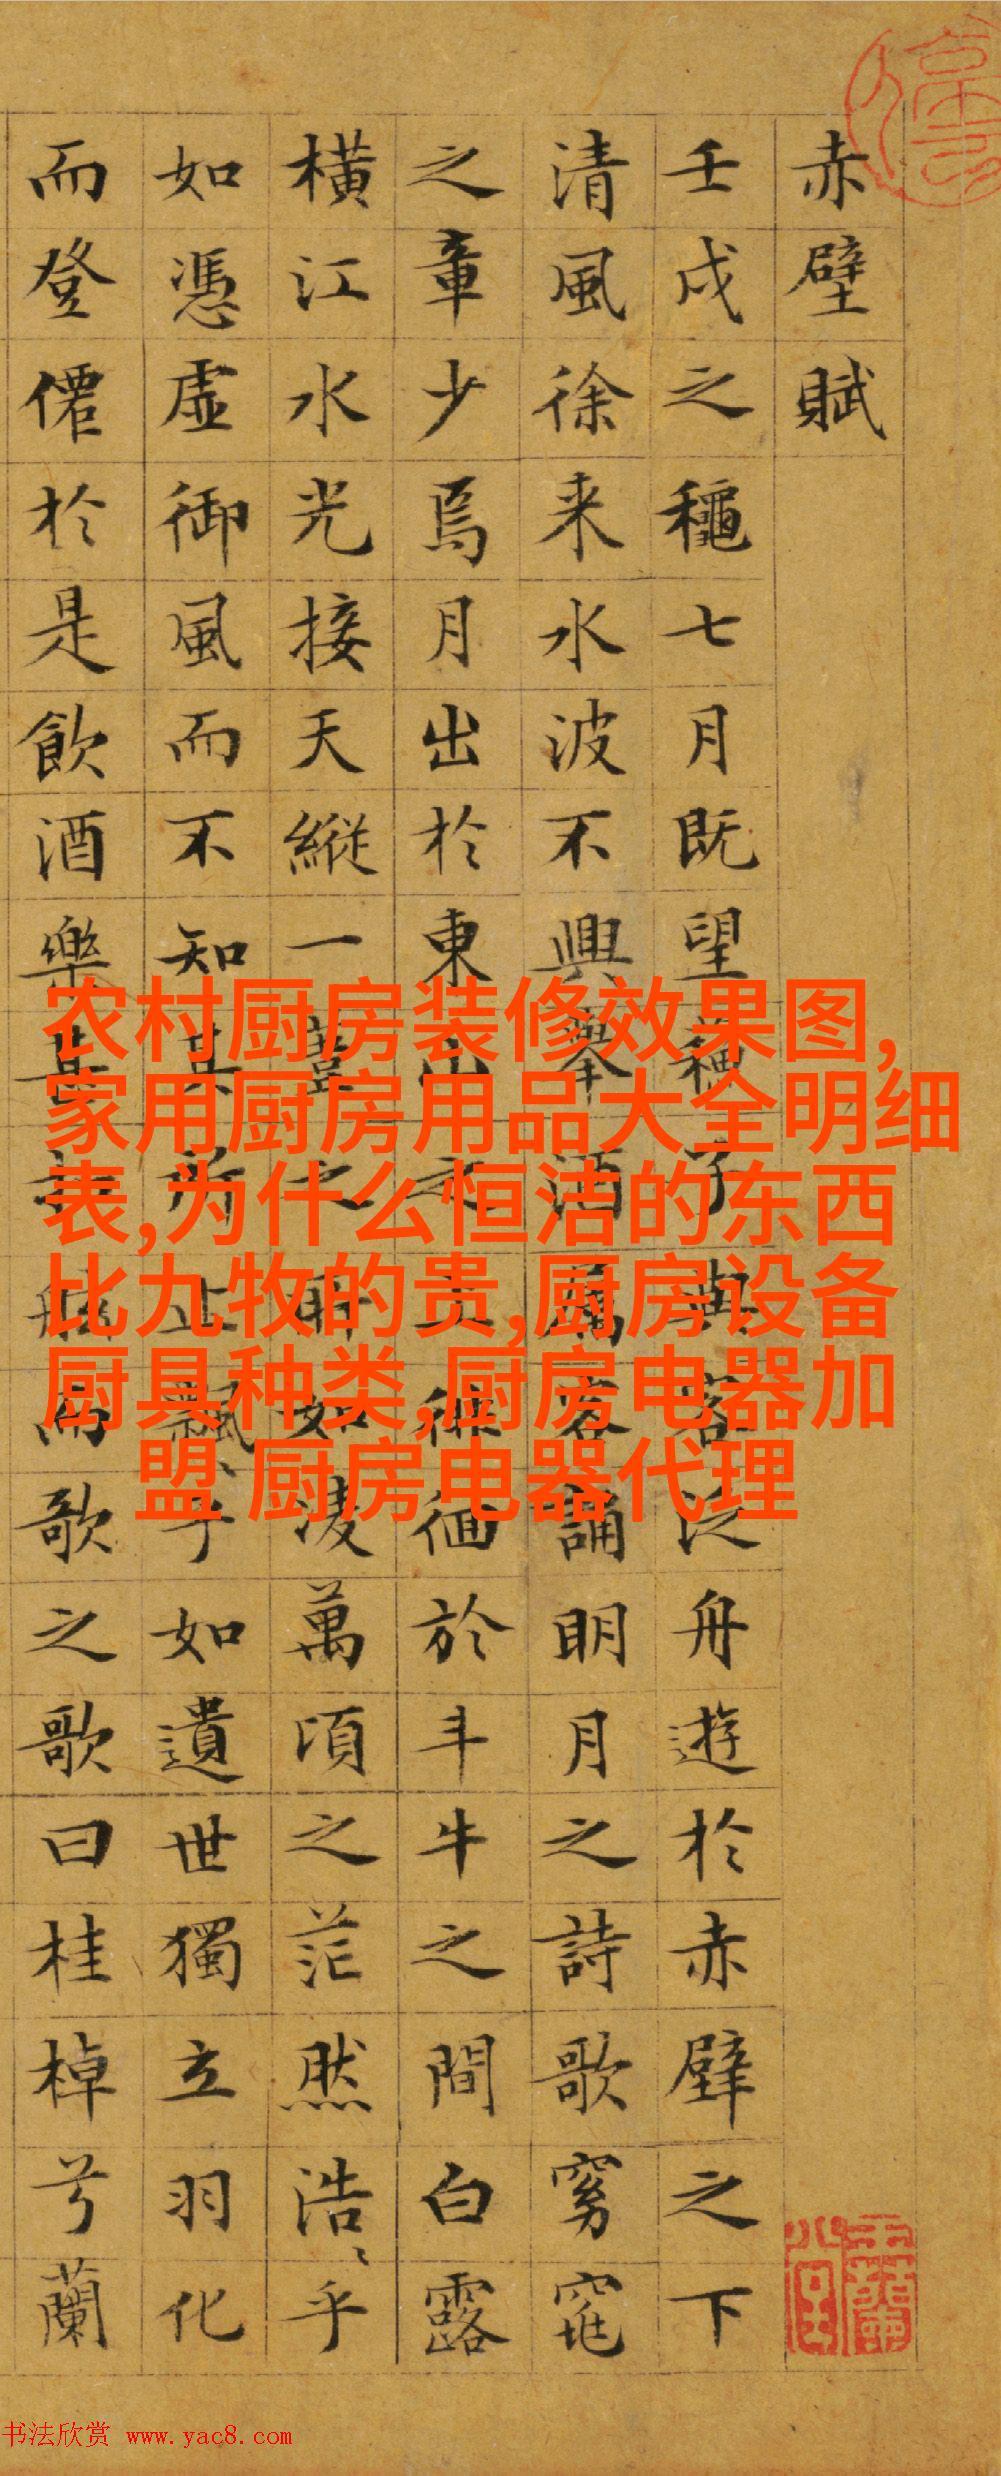 赤壁賦
壬戌之穐七月既望蘓子與客泛舟遊於赤壁之下
清風徐来水波不興舉酒屬客誦明月之詩歌窈窕
之章少焉月出於東山之上徘徊於斗牛之間白露
橫江水光接天縱一葦之所如凌萬頃之茫然浩〻乎
如憑虛御風而不知其所止飄〻乎如遺世獨立羽化
而登僊於是飲酒樂甚扣舷而歌之歌曰桂棹兮蘭
农村厨房装修效果图,
家用厨房用品大全明细
表,为什么恒洁的东西
比九牧的贵,厨房设备
厨具种类,厨房电器加
盟 厨房电器代理
书法欣赏 www.yac8.com